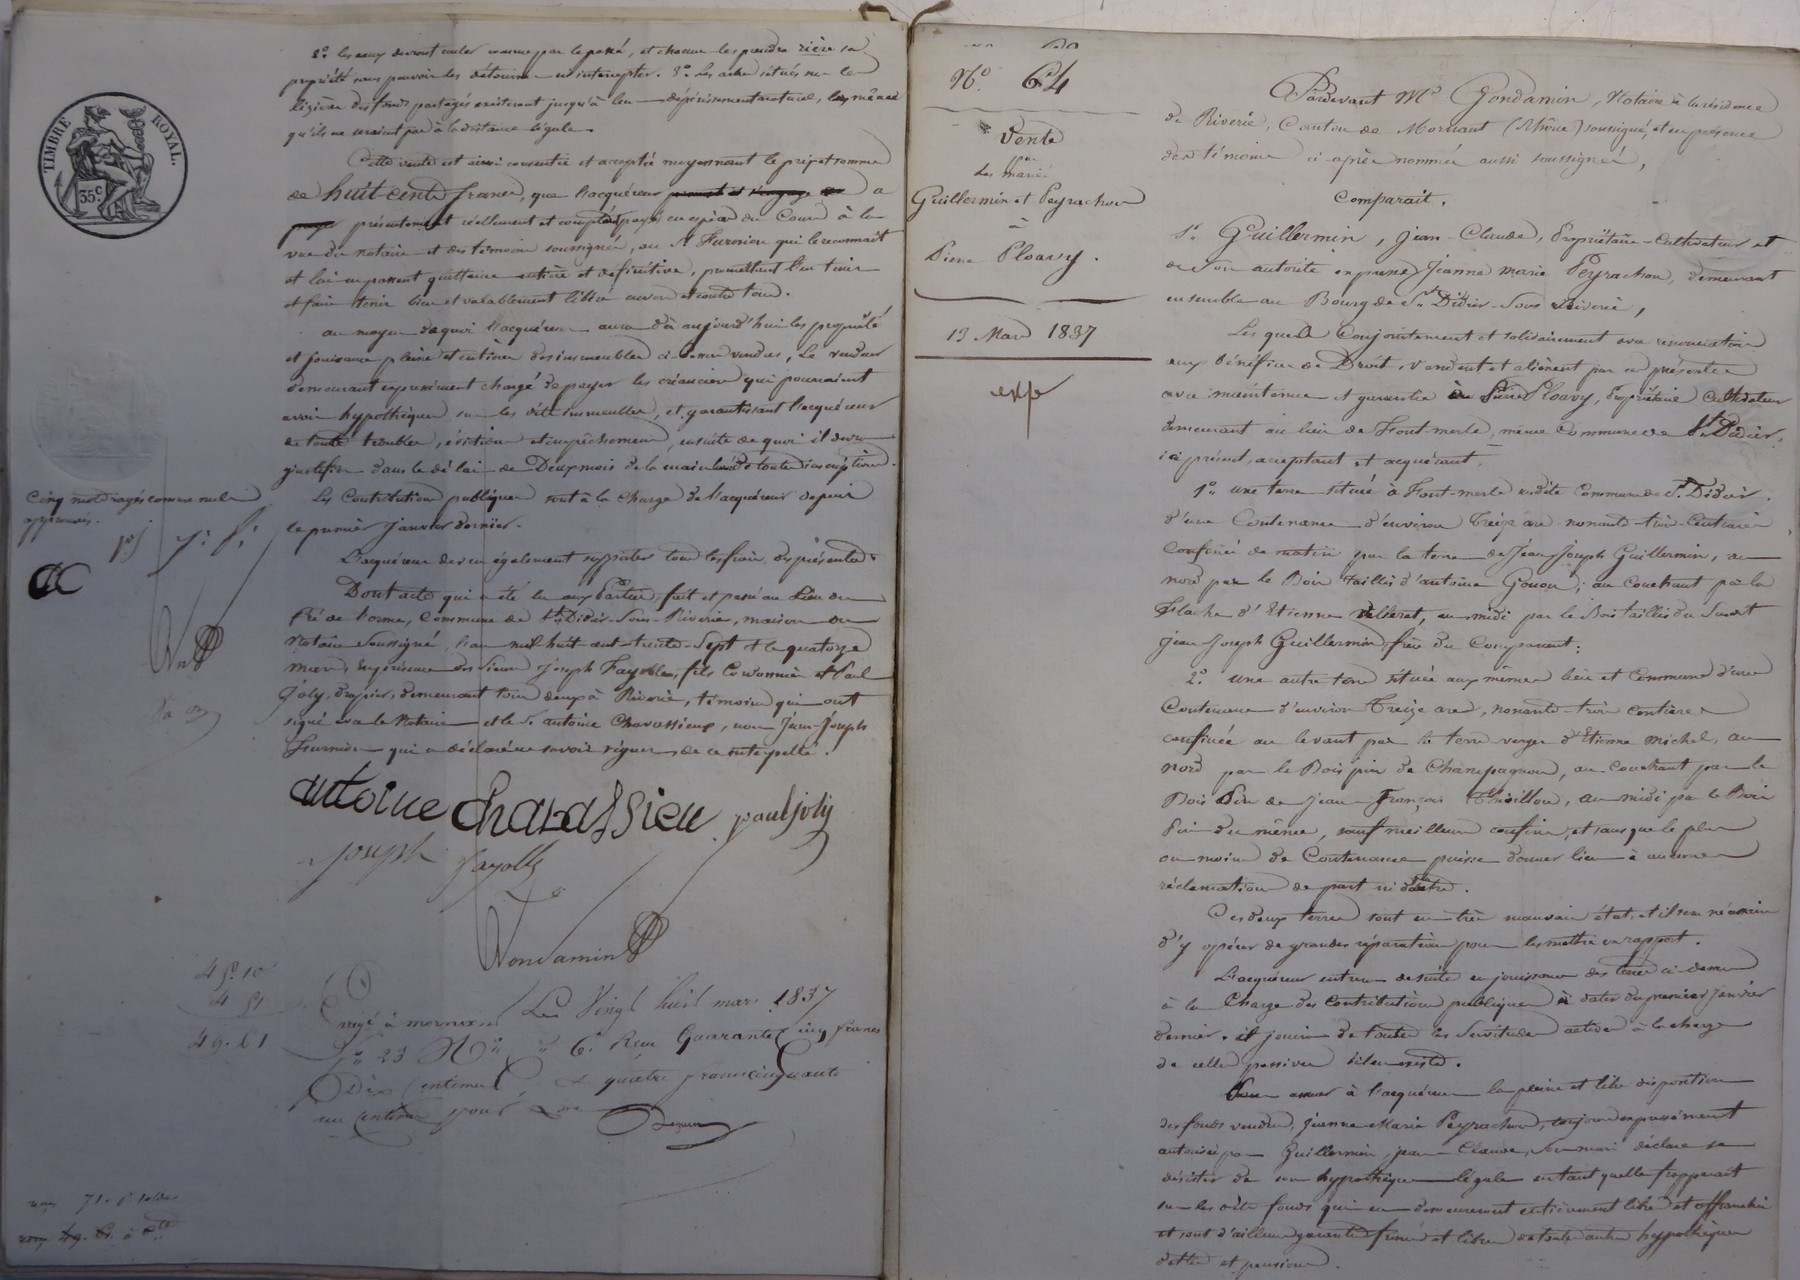 2.° les eaux devront couler comme par le passé, et chacun les prendra rière sa
propriété sans pouvoir les détourner ni intercepter. 3.° Les arbres situés sur la
lizière des fonds partagés existeront jusqu'à leur dépérissement naturel, lors même
qu'ils ne seraient pas à la distance légale.
Cette vente est aussi consentie et acceptée moyennant le prix et somme
de huit cents francs, que l'acquéreur promet et s'engage de a
payer présentement réellement et comptant payé en espèces de Cours à la
vue du notaire et des témoins soussignés, au S.r Furnion qui le reconnaît
et lui en passe quittance entière et définitive, promettant l'en tenir
et faire tenir bien et valablement libéré envers et contre tous.
au moyen de quoi l'acquéreur aura dès aujourd'hui les propriété
et jouissance pleine et entière des immeubles ci-dessus vendus, Le vendeur
demeurant expressément chargé de payer les créanciers qui pourraient
avoir hypothèque sur les dits immeubles, et garantissant l'acquéreur
de toute troubles, évictions et empêchements, ensuite de quoi il devra
justifier dans le délai de Deux mois de la main levée de toute inscription.
Les Contributions publiques sont à la Charge de l'acquéreur depuis
le premier Janvier dernier.
L'acquéreur devra également supporter tous les frais des présentes.
Dont acte qui a été lu aux Parties, fait et passé au Lieu du
Pré de l'orme, Commune de St. Didier-Sous-Riverie, maison du
Notaire Soussigné, l'an mil-huit-cent-trente-Sept et le quatorze
mars en présence des Sieurs Joseph Fayolle, fils Cordonnier et Paul
Joly, drapier, demeurant tous deux à Riverie, témoins qui ont
signé avec le Notaire et le S.r antoine Chavassieux, non Jean-Joseph
Furnion qui a déclaré ne savoir signer de ce interpellé.
antoine chavassieu paul joly
Joseph fayolle
Gondamin
Enregé à mornant Le Vingt huit mars 1837
f.° 23 R.° C. 6. Reçu Quarante Cinq francs
Dix Centimes & quatre francs cinquante
un Centimes pour
TIMBRE ROYAL.
35c
Cinq mots rayés comme nuls
approuvés.
pj j. f.
ac
45.10
4 51
49.61
N.° 64
Vente
des mariés
Guillermin et Peyrachon
à
Pierre Ploavy.
13 Mars 1837
exp
Pardevant M.e Gondamin, Notaire à la résidence
de Riverie, Canton de Mornant (Rhône) soussigné, et en présence
des témoins ci-après nommés aussi soussignés,
Comparait.
1.° Guillermin, Jean-Claude, Propriétaire-Cultivateur et
de son autorité expresse Jeanne Marie Peyrachon, demeurant
ensemble au Bourg de St. Didier-Sous Riverie,
Lesquels Conjointement et solidairement avec renonciation
aux bénéfices de Droit, vendent et aliènent par ces présentes
avec maintenue et garantie à Pierre Ploavy, Propriétaire Cultivateur
demeurant au lieu de Font-merle, même Commune de St. Didier,
ici présent, acceptant et acquérant.
1.° une terre située à Font-merle susdite Commune de St. Didier.
d'une Contenance d'environ Treize ares nonante-trois Centiares
Confinée de matin par la terre de Jean Joseph Guillermin, au
nord par le Bois taillis d'antoine Gonon; au Couchant par la
Flache d'Etienne Velleret, au midi par le Bois taillis du Susdit
Jean Joseph Guillermin frère du Comparant:
2.° une autre terre située aux mêmes lieu et Commune d'une
Contenance d'environ Treize ares, nonante-trois Centiares
confinée au levant par la terre verger d'Etienne Michel, au
nord par le Bois pin de Champagnon, au Couchant par le
Bois Pin de Jean François Thivillon, au midi par le Bois
Pin du même, sauf meilleurs confins, et sans que le plus
ou moins de Contenance puisse donner lieu à aucune
réclamation de part ni d'autre.
Ces deux terres sont en très mauvais état, et il sera nécessaire
d'y opérer de grandes réparations pour les mettre en rapport.
L'acquéreur entrera de suite en jouissance des terres ci-dessus
à la Charge des Contributions publiques à dater du premier Janvier
dernier, et jouira de toutes les Servitudes actives à la charge
de celles passives s'il en existe.
Pour assurer à l'acquéreur la pleine et libre disposition
des fonds vendus, Jeanne Marie Peyrachon, toujours expressément
autorisée par Guillermin, Jean-Claude, son mari déclare se
désister de son hypothèque légale en tant quelle frapperait
sur les dits fonds qui en demeureront entièrement libres et affranchis
et sont d'ailleurs garantis francs et libres de toute autre hypothèque
dettes et pensions.